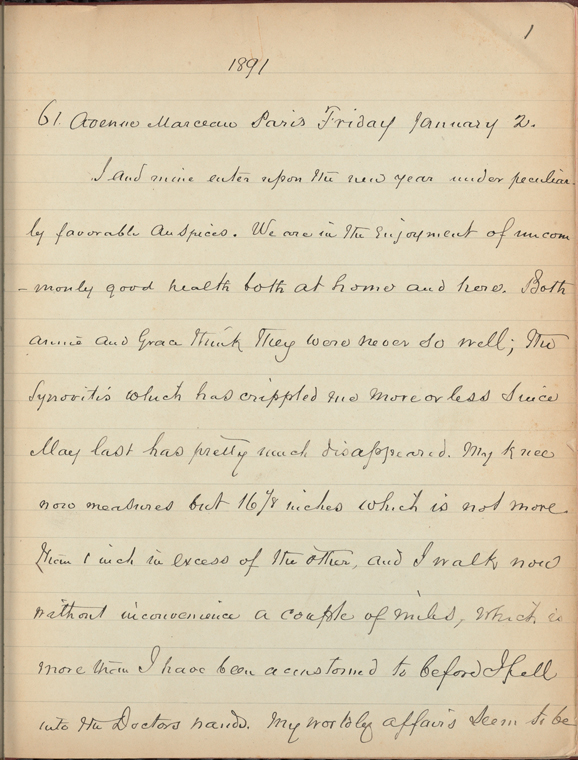 1
1891
61. Avenue Marceau Paris Friday January 2.
I and mine enter upon the new year under peculiar
ly favorable auspices. We are in the enjoyment of uncom
-monly good health both at home and here. Both
Annie and Grace think they were never so well; the
Synovitis which has crippled me more or less since
May last has pretty much disappeared. My knee
now measures but 16 7/8 inches which is not more
than 1 inch in excess of the other, and I walk now
without inconvenience a couple of miles, which is
more than I have been accustomed to before I fell
into the Doctors hands. My worldly affairs seem to be